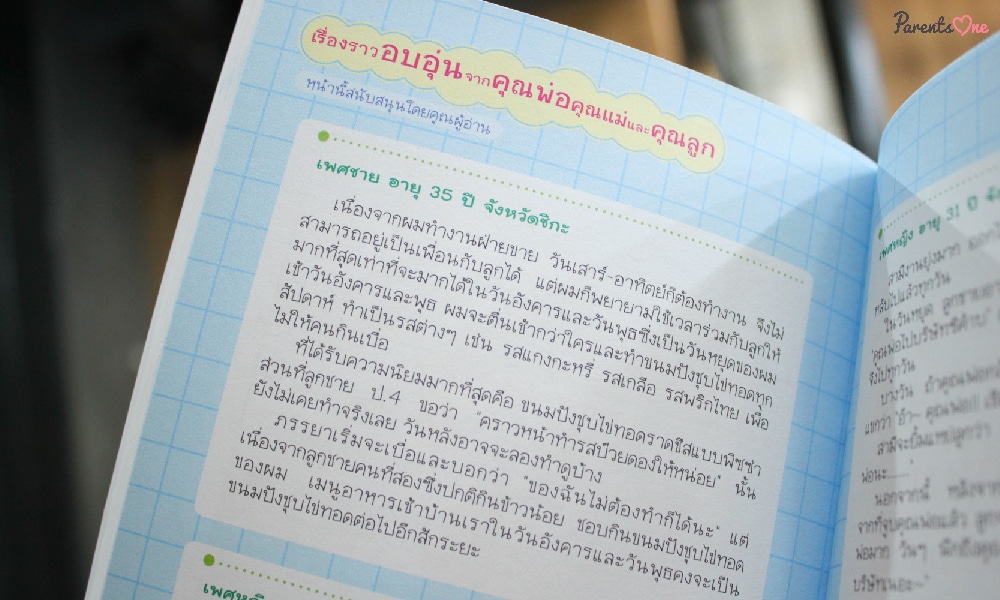 ParentsOne
เรื่องราวอบอุ่นจากคุณพ่อคุณแม่และคุณลูก
หน้านี้สนับสนุนโดยคุณผู้อ่าน
เพศชาย อายุ 35 ปี จังหวัดชิกะ
เนื่องจากผมทำงานฝ่ายขาย วันเสาร์-อาทิตย์ก็ต้องทำงาน จึงไม่
สามารถอยู่เป็นเพื่อนกับลูกได้ แต่ผมก็พยายามใช้เวลาร่วมกับลูกให้
มากที่สุดเท่าที่จะมากได้ในวันอังคารและวันพุธซึ่งเป็นวันหยุดของผม
เช้าวันอังคารและพุธ ผมจะตื่นเช้ากว่าใครและทำขนมปังชุบไข่ทอดทุก
สัปดาห์ ทำเป็นรสต่างๆ เช่น รสแกงกะหรี่ รสเกลือ รสพริกไทย เพื่อ
ไม่ให้คนกินเบื่อ
ที่ได้รับความนิยมมากที่สุดคือ ขนมปังชุบไข่ทอดราดชีสแบบพิซซ่า
ส่วนที่ลูกชาย ป.4 ขอว่า "คราวหน้าทำรสบ๊วยดองให้หน่อย" นั้น
ยังไม่เคยทำจริงเลย วันหลังอาจจะลองทำดูบ้าง
ภรรยาเริ่มจะเบื่อและบอกว่า "ของฉันไม่ต้องทำก็ได้นะ" แต่
เนื่องจากลูกชายคนที่สองซึ่งปกติกินข้าวน้อย ชอบกินขนมปังชุบไข่ทอด
ของผม เมนูอาหารเช้าบ้านเราในวันอังคารและวันพุธคงจะเป็น
ขนมปังชุบไข่ทอดต่อไปอีกสักระยะ
เพศหญิง อายุ 31 ปี
สามีงานยุ่งมาก
กลับไปแล้วทุกวัน
ในวันหยุด
"คุณพ่อไปบริษัทซีค้าบ"
จึงไปทุกวัน
บางวัน ถ้าคุณพ่อ
พ่อนะ......"
นอกจากนี้